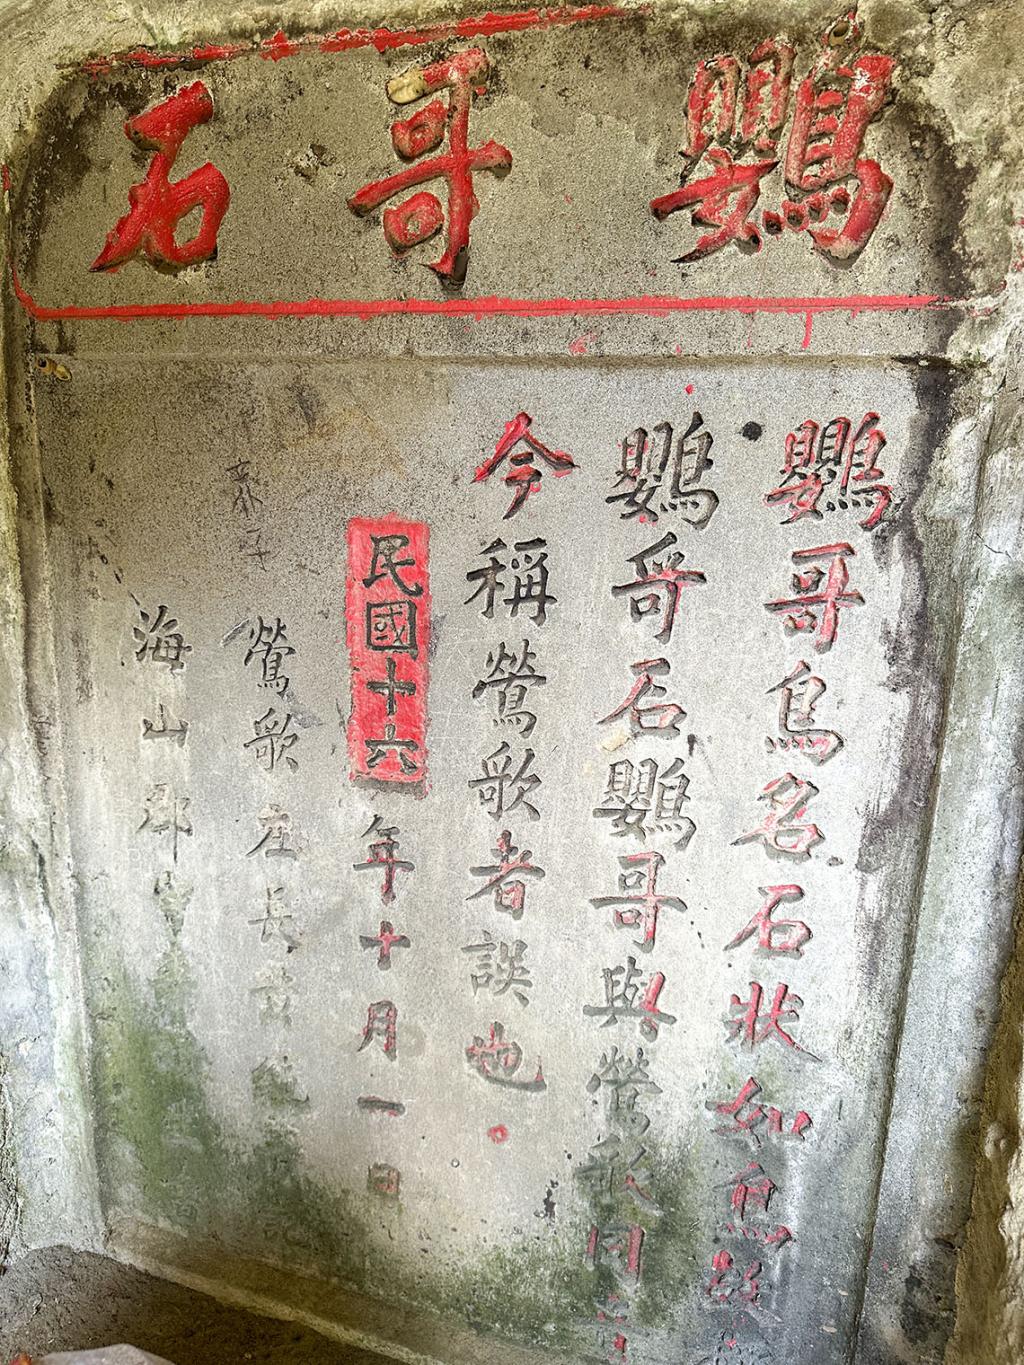 鸚哥石
鸚哥鳥名石狀如鳥故
鸚哥石鸚哥與鶯歌同音
今稱鶯歌者誤也
民國十六年十月一日
鶯歌庄長
海山郡